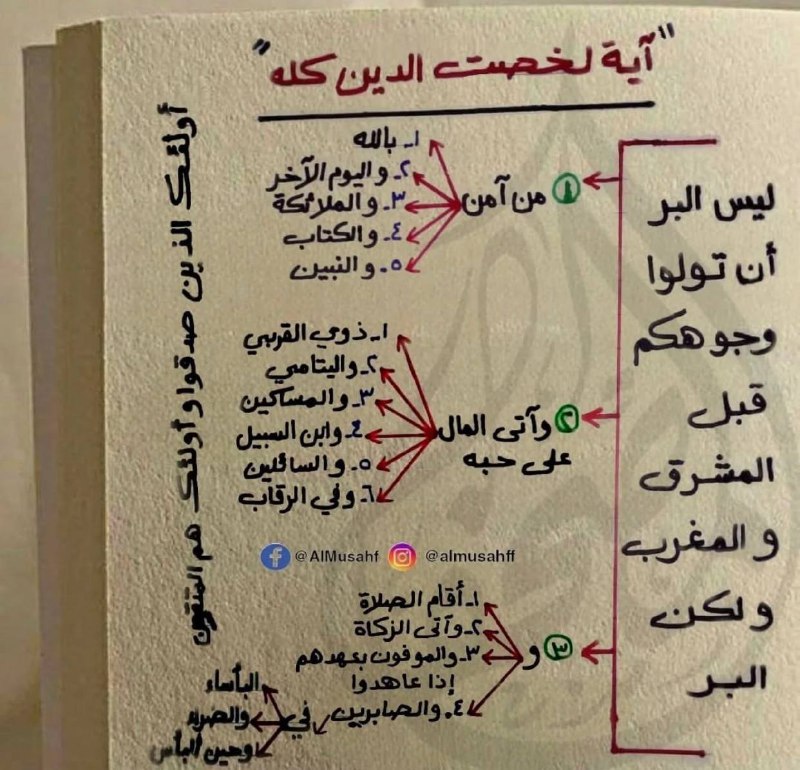 "آية لخصت الدين كله"
ليس البر
أن تولوا
وجوهكم
قبل
المشرق
والمغرب
ولكن
البر
١ من آمن
١- بالله
٢- واليوم الآخر
٣- والملائكة
٤- والكتاب
٥- والنبين
٢ وآتى المال
على حبه
١- ذوي القربي
٢- واليتامي
٣- والمساكين
٤- وابن السبيل
٥- والسائلين
٦- وفي الرقاب
@AlMusahf @almusahff
٣ و
١- أقام الصلاة
٢- وآتى الزكاة
٣- والموفون بعهدهم
إذا عاهدوا
٤- والصابرين في
البأساء
والضراء
وحين البأس
أولئك الذين صدقوا وأولئك هم المتقون